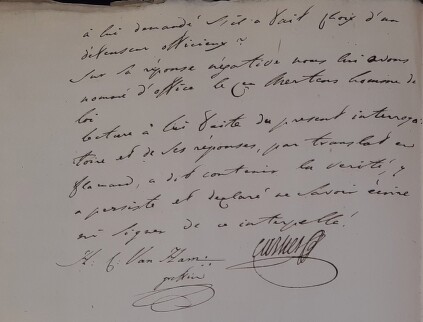 à lui demandé s'il a fait choix d'un
défenseur officieux?
Sur sa réponse négative nous lui avons
nommé d'office le Cen Mertens homme de
loi
lecture à lui faite du present interroga-
toire et de ses réponses, par translat en
flamand, a dit contenir la verité, y
a persisté et declaré ne savoir écrire
ni signer de ce interpellé.
H. C. Van Ham
greffier